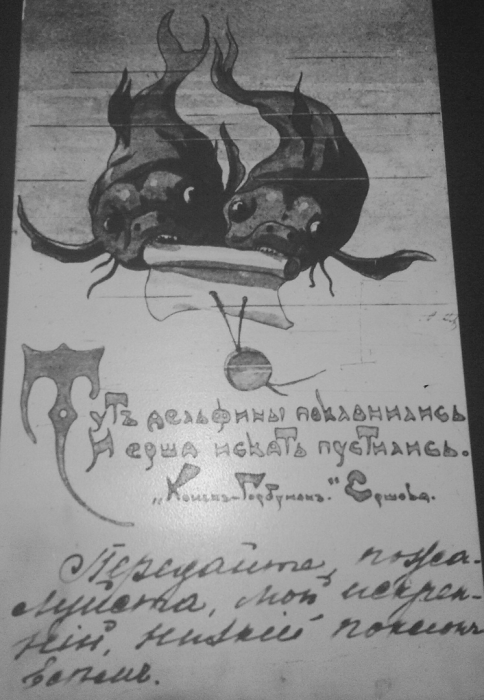 Тутъ дельфины поклонились
И ерша искать пустились.
„Конекъ-Горбунокъ." Ершова.
Передайте, пожа-
луйста, мой искрен-
ній, низкій поклонъ
всѣмъ.